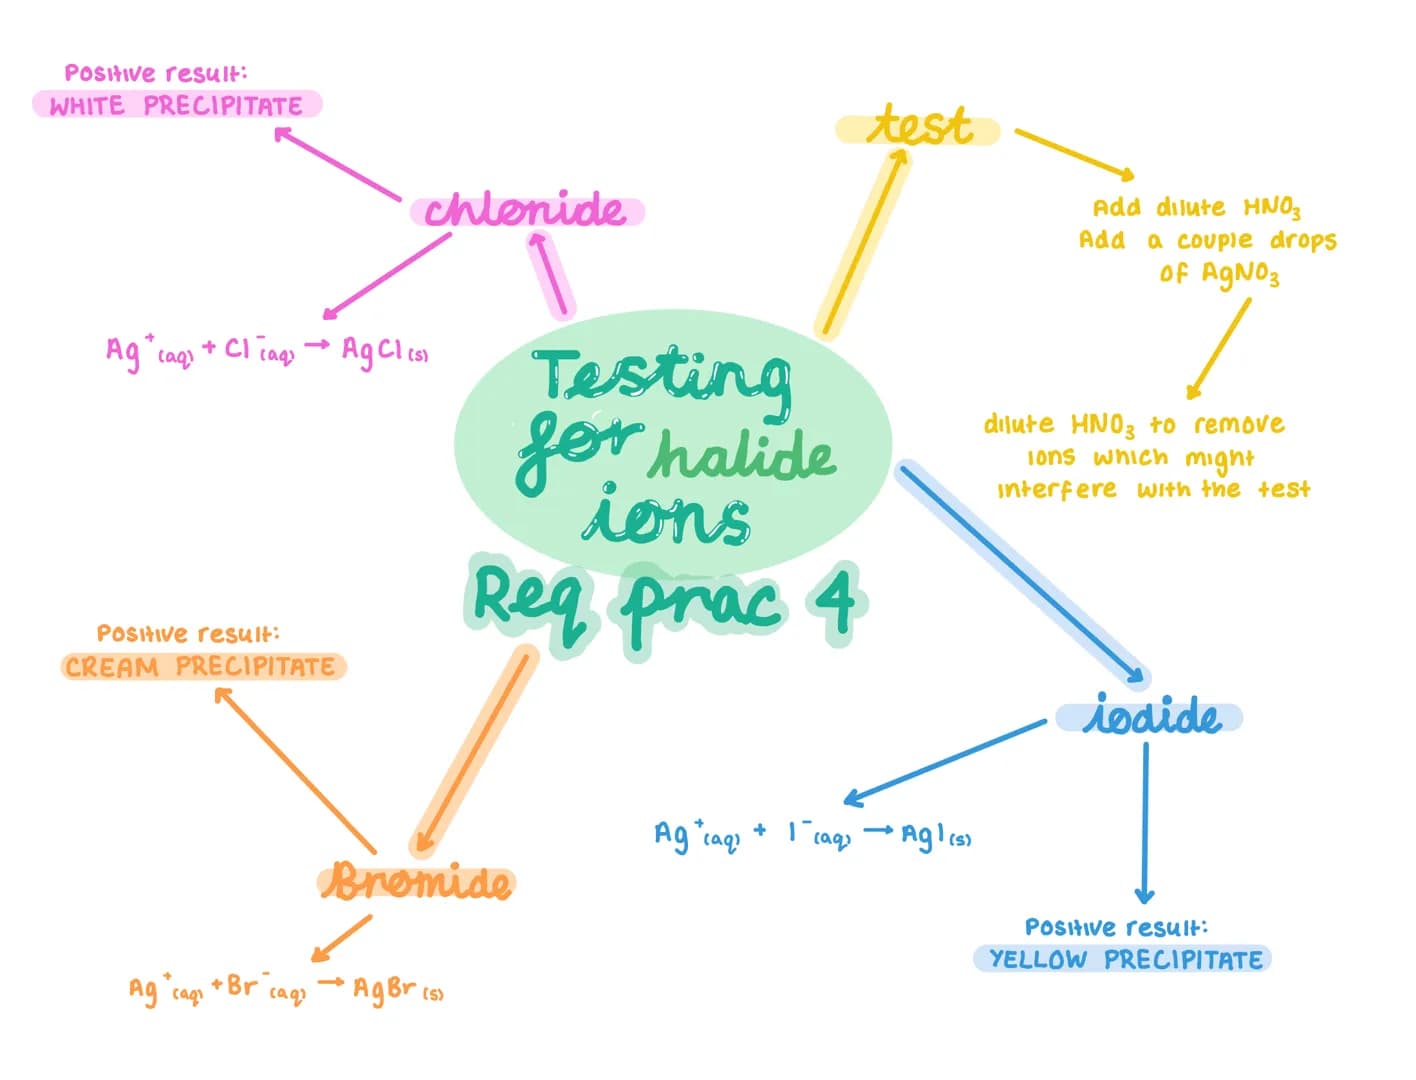 Testing
for halide
ions
Req prac 4
test
Add dilute HNO₃
Add a couple drops
of AgNO₃
dilute HNO₃ to remove
ions which might
interfere with the test
chloride
Positive result:
WHITE PRECIPITATE
Ag⁺(aq) + Cl⁻(aq) → AgCl(s)
iodide
Ag⁺(aq) + I⁻(aq) → AgI(s)
Positive result:
YELLOW PRECIPITATE
Bromide
Positive result:
CREAM PRECIPITATE
Ag⁺(aq) + Br⁻(aq) → AgBr(s)